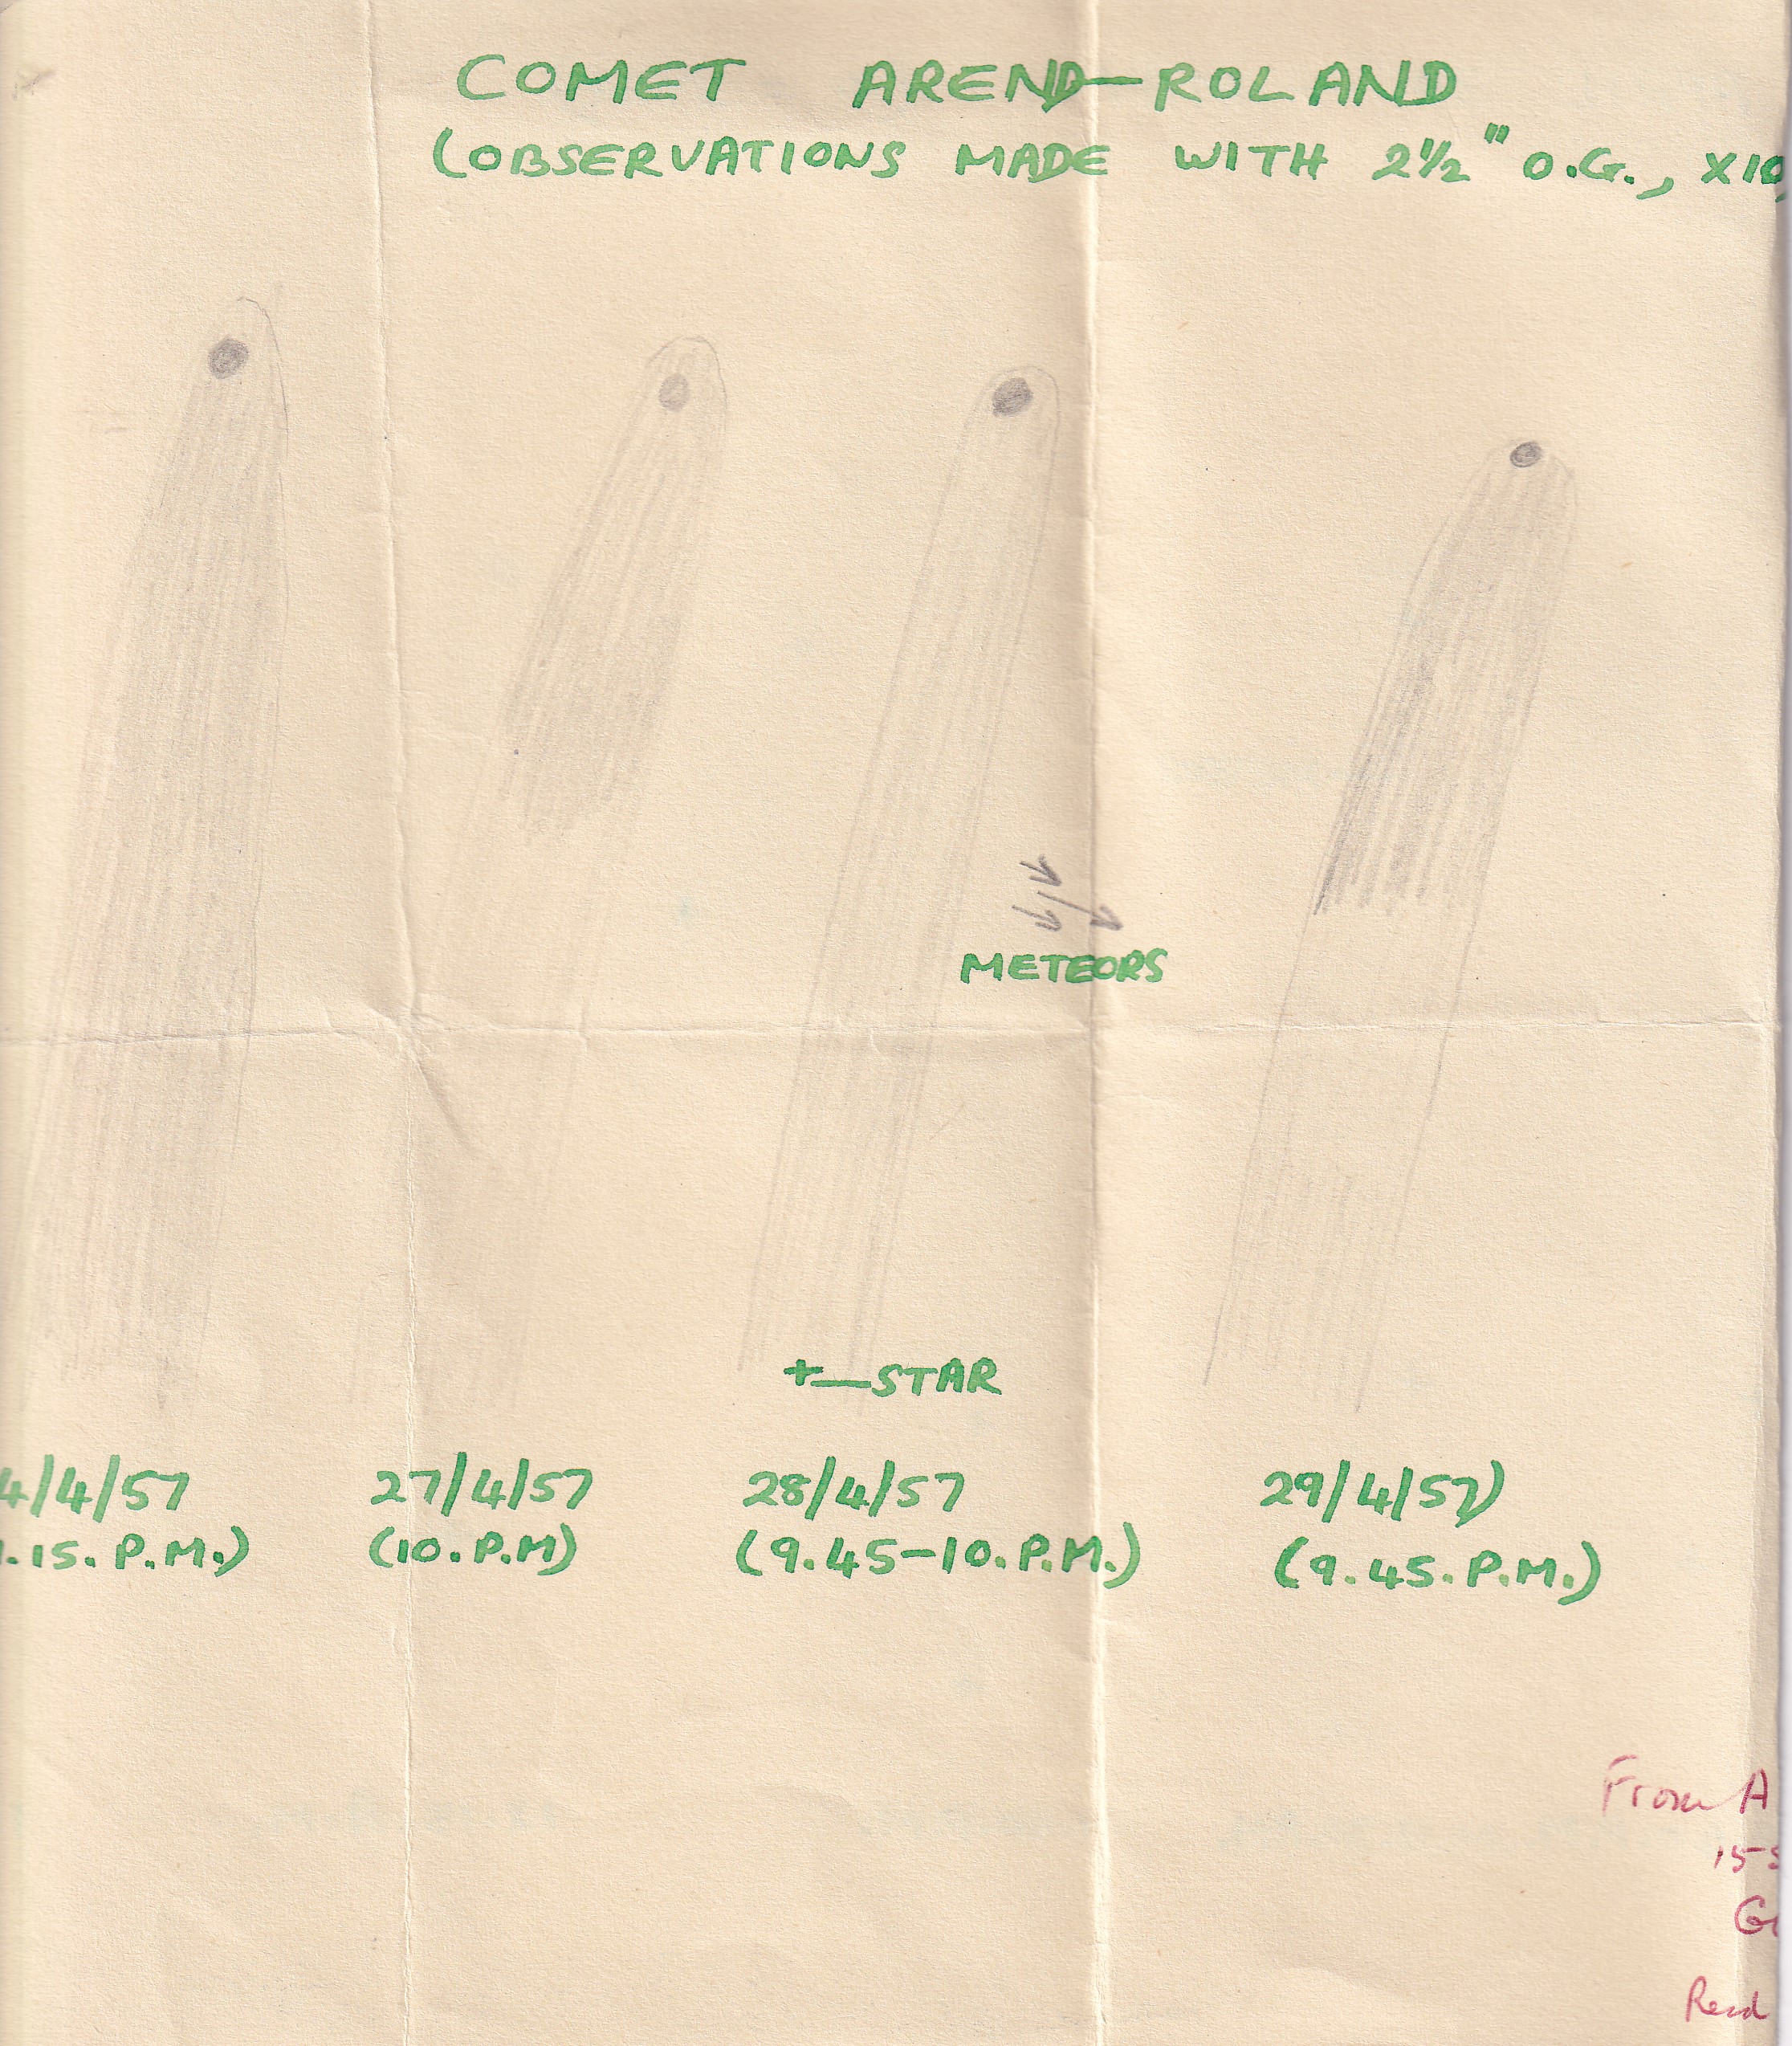 COMET AREND-ROLAND
(OBSERVATIONS MADE WITH 2½" O.G., X10
METEORS
+—STAR
4/4/57 27/4/57 28/4/57 29/4/57)
.15. P.M.) (10.P.M) (9.45-10.P.M.) (9.45.P.M.)
From A
155
G
Read